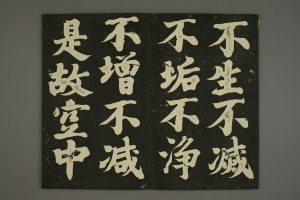 不生不滅
不垢不净
不增不减
是故空中